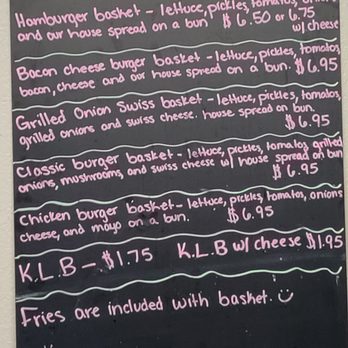 Hamburger basket - lettuce, pickles, tomatos,
and our house spread on a bun $6.50 or 6.75
w/ cheese
Bacon cheese burger basket - lettuce, pickles, tomatos,
bacon, cheese and our house spread on a bun. $6.95
Grilled Onion Swiss basket - lettuce, pickles, tomatos,
grilled onions and swiss cheese. house spread on bun.
$6.95
Classic burger basket - lettuce, pickles, tomatos, grilled
onions, mushrooms, and swiss cheese w/ house spread on bun
$6.95
Chicken burger basket - lettuce, pickles, tomatos, onions
cheese, and mayo on a bun. $6.95
K.L.B - $1.75 K.L.B w/ cheese $1.95
Fries are included with basket. ☺